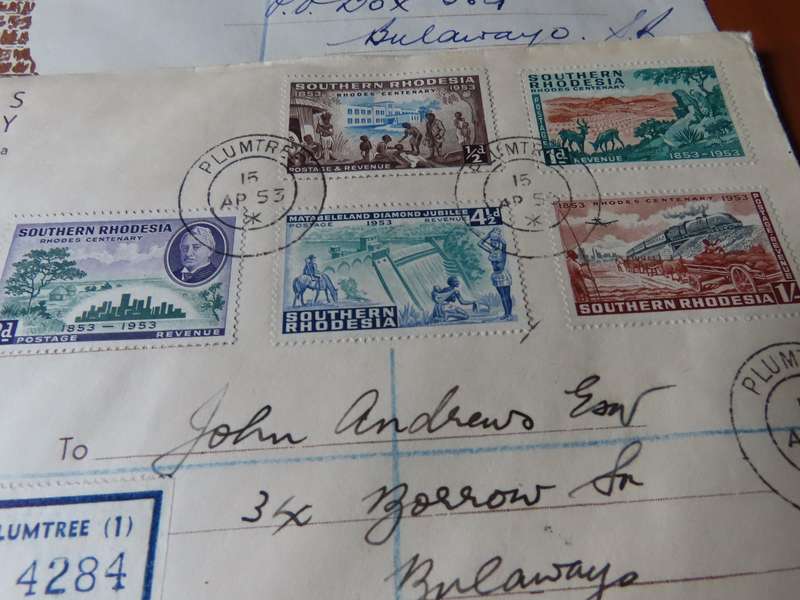 P.O BOX
Bulawayo. S.R
S
Y
a
SOUTHERN RHODESIA
1853 RHODES CENTENARY 1953
POSTAGE & REVENUE
½d
SOUTHERN
RHODESIA
RHODES CENTENARY
POSTAGE
1d
REVENUE 1853-1953
PLUMTREE
15
AP 53
PLUMTREE
15
AP 53
SOUTHERN RHODESIA
RHODES CENTENARY
1853 — 1953
POSTAGE REVENUE
MATABELELAND DIAMOND JUBILEE
POSTAGE 1953 REVENUE
4½d
SOUTHERN
RHODESIA
1853 RHODES CENTENARY 1953
POSTAGE & REVENUE
SOUTHERN RHODESIA 1/-
PLUMTRE
To John Andrews Esq
Borrow
Bulawayo
LUMTREE (1)
4284